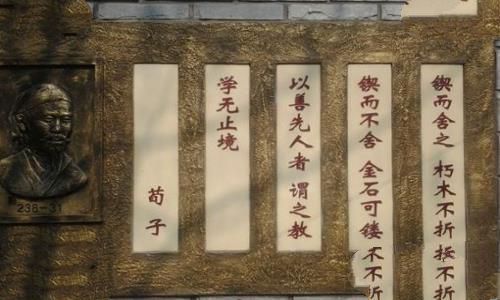 锲而舍之 朽木不折 不折
锲而不舍 金石可镂 木不折
以善先人者 谓之教
学无止境
荀子
238-31